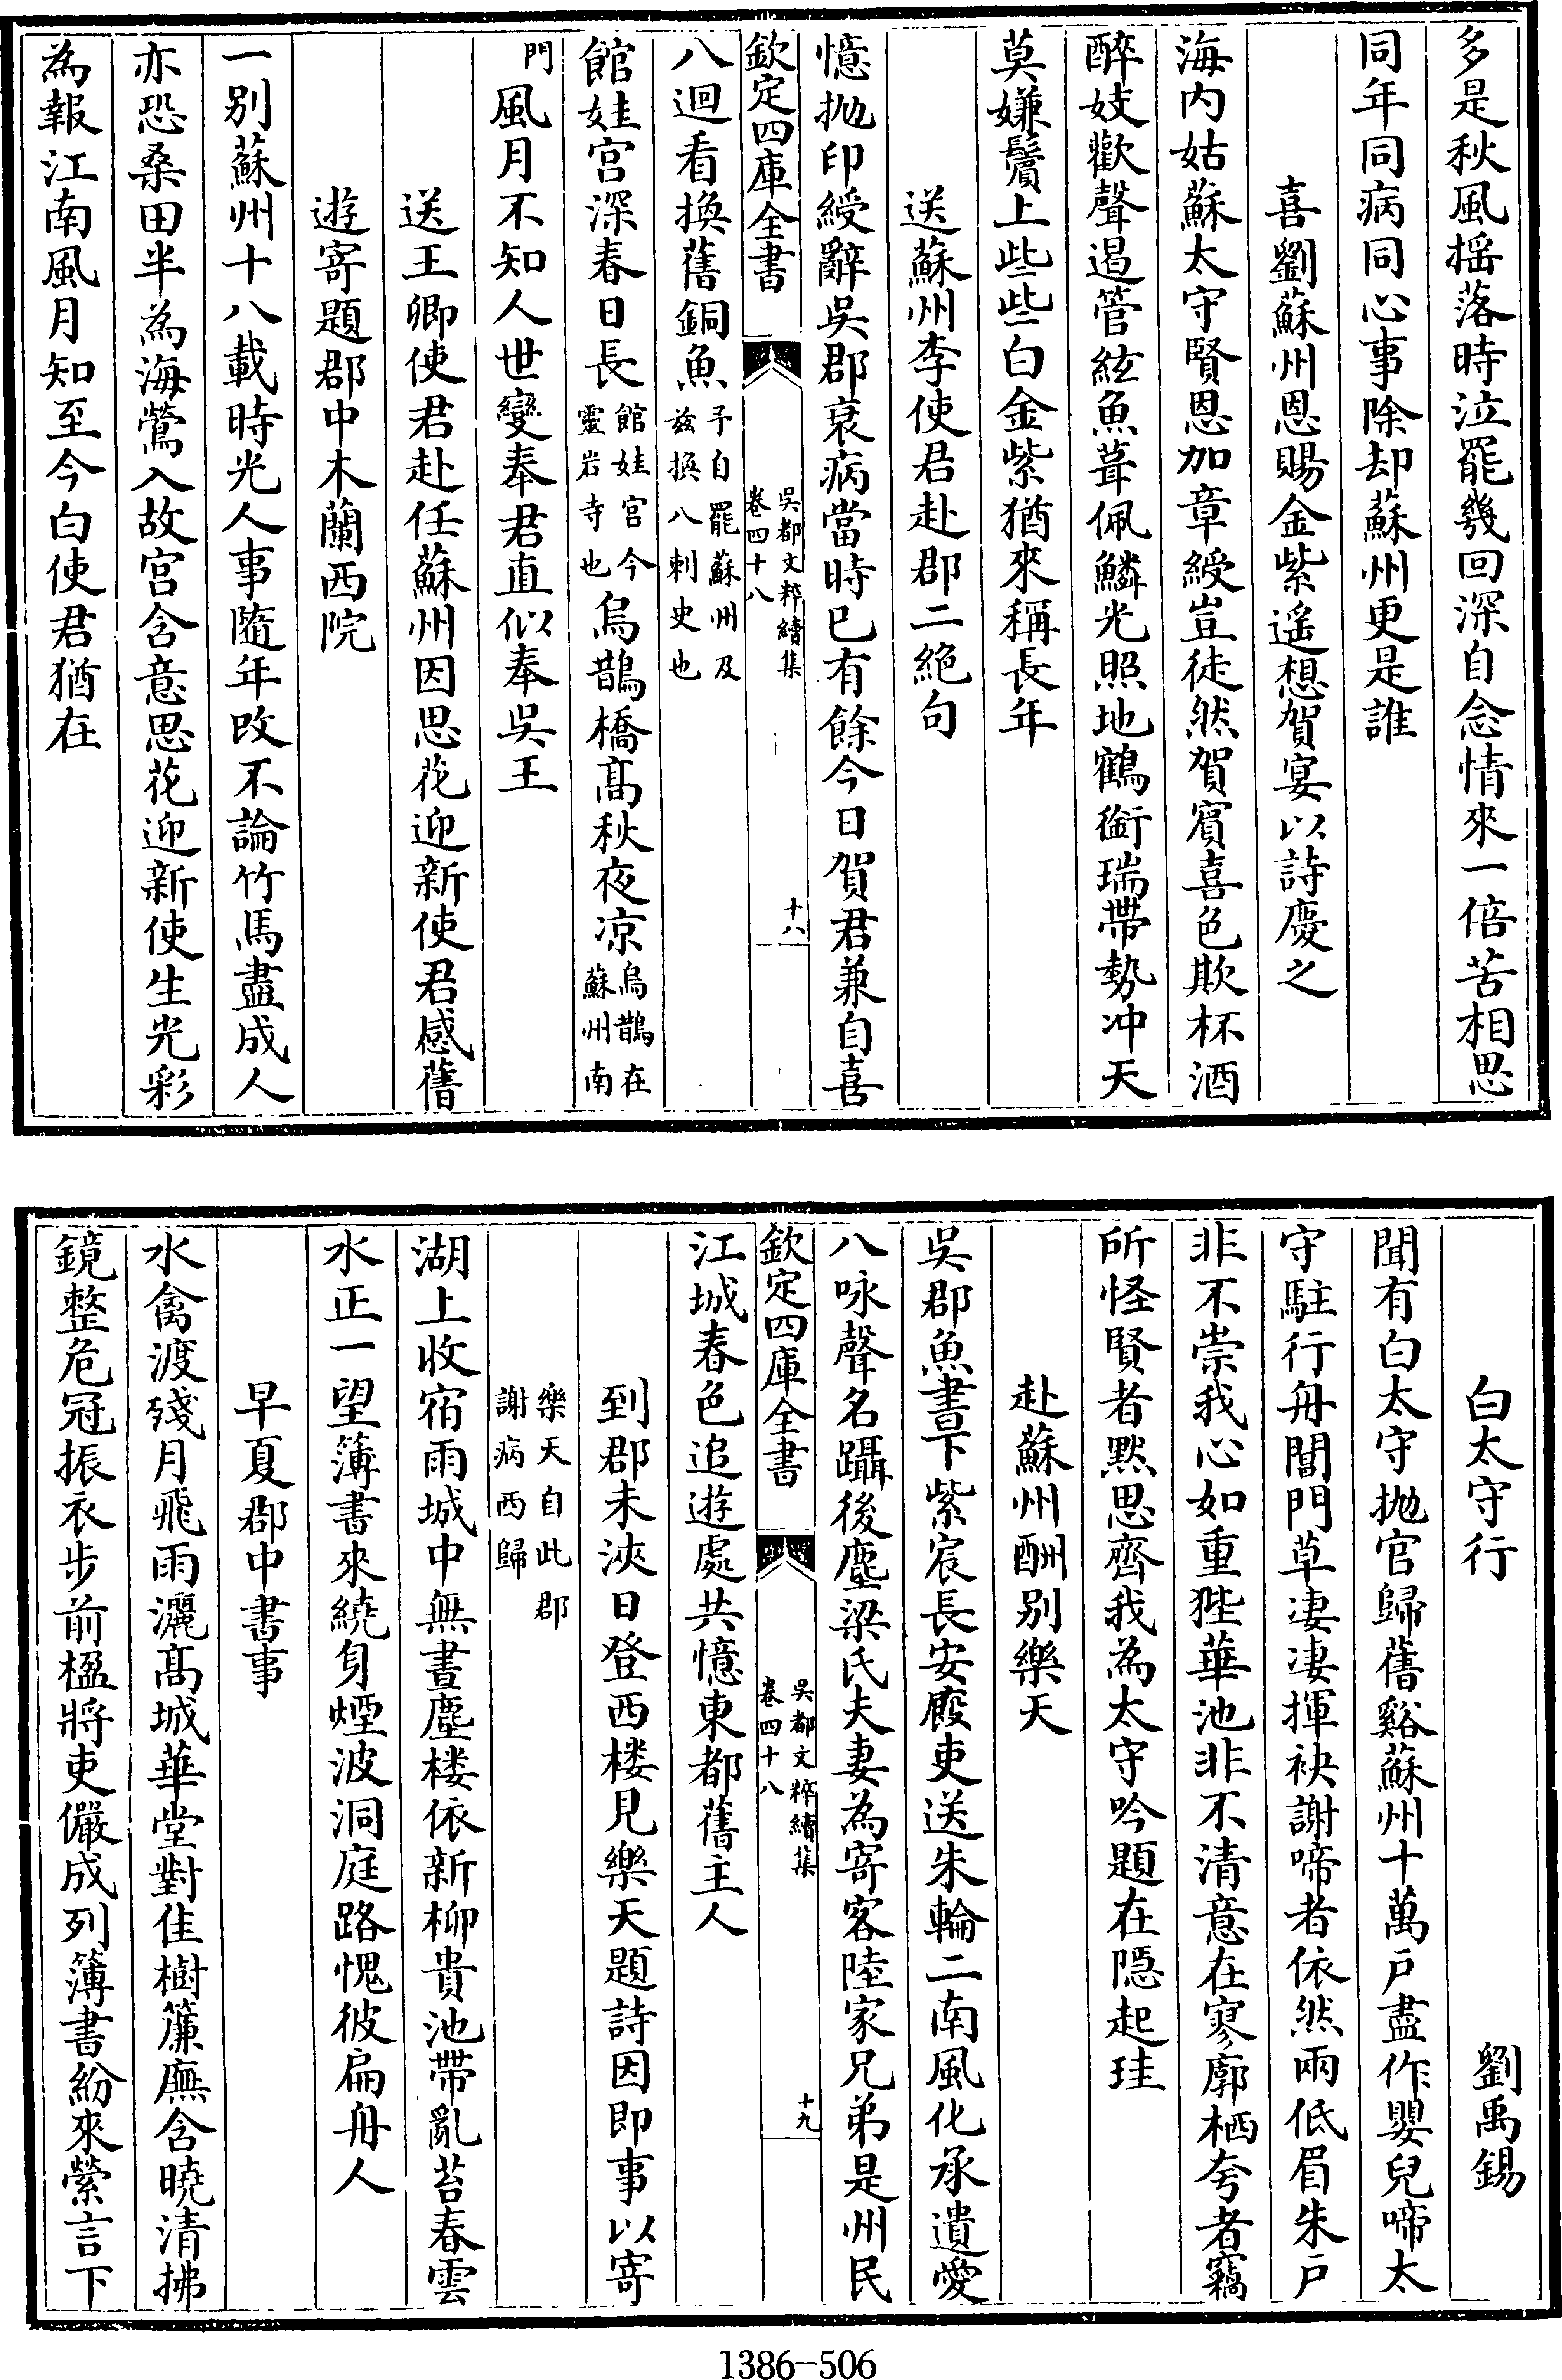 多是秋風揺落時泣罷幾回深自念情來一倍苦相思
同年同病同心事除却蘇州更是誰
喜劉蘇州恩賜金紫遥想賀宴以詩慶之
海内姑蘇太守賢恩加章綬豈徒然賀賓喜色欺杯酒
醉妓歡聲遏管絃魚葺佩鱗光照地鶴銜瑞帶勢冲天
莫嫌鬢上些些白金紫猶來稱長年
送蘇州李使君赴郡二絶句
憶抛印綬辭吳郡衰病當時已有餘今日賀君兼自喜
欽定四庫全書
吳都文粹續集
卷四十八
十八
八迴看換舊銅魚予自罷蘇州及兹換八刺史也
館娃宫深春日長館娃宫今靈岩寺也烏鵲橋髙秋夜凉烏鵲在蘇州南
門風月不知人世變奉君直似奉吳王
送王卿使君赴任蘇州因思花迎新使君感舊
遊寄題郡中木蘭西院
一别蘇州十八載時光人事隨年改不論竹馬盡成人
亦恐桑田半為海鶯入故宫含意思花迎新使生光彩
為報江南風月知至今白使君猶在
白太守行
劉禹錫
聞有白太守抛官歸舊谿蘇州十萬户盡作嬰兒啼太
守駐行舟閶門草凄凄揮袂謝啼者依然兩低眉朱户
非不崇我心如重狴華池非不清意在寥廓栖夸者竊
所怪賢者黙思齊我為太守吟題在隠起珪
赴蘇州酬别樂天
吳郡魚書下紫宸長安廐吏送朱輪二南風化承遺愛
八咏聲名躡後塵梁氏夫妻為寄客陸家兄弟是州民
欽定四庫全書
吳都文粹續集
卷四十八
十九
江城春色追遊處共憶東都舊主人
到郡未浹日登西楼見樂天題詩因即事以寄
樂天自此郡謝病西歸
湖上收宿雨城中無晝塵楼依新柳貴池帶亂苔春雲
水正一望簿書來繞身煙波洞庭路愧彼扁舟人
早夏郡中書事
水禽渡殘月飛雨灑髙城華堂對佳樹簾廡含曉清拂
鏡整危冠振衣步前楹將吏儼成列簿書紛來縈言下
1386-506